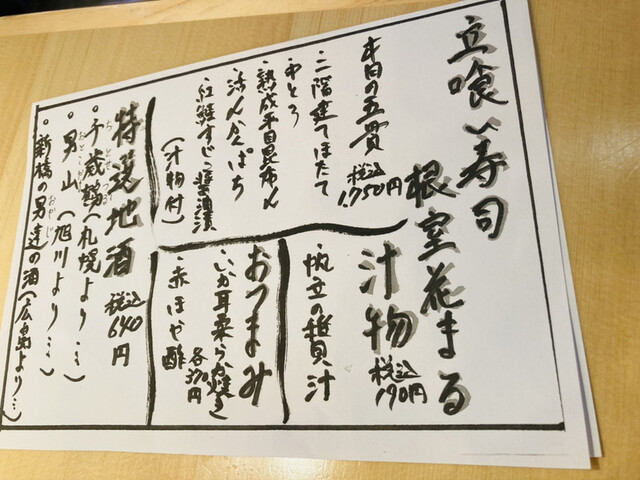 立喰い寿司
根室花まる
本日の五貫
税込1,750円
・二階建てほたて
・中とろ
・熟成平目昆布〆
・活〆かんぱち
・紅鮭すじこ醤油漬
(汁物付)
汁物
税込190円
帆立の稚貝汁
おつまみ
・いか耳柔らか焼き
・赤ほや酢
各370円
特選地酒
税込640円
・千歳鶴(札幌より…)
ちとせつる
・男山(旭川より…)
おとこやま
・新橋の男達の酒(広島より…)
おやじ